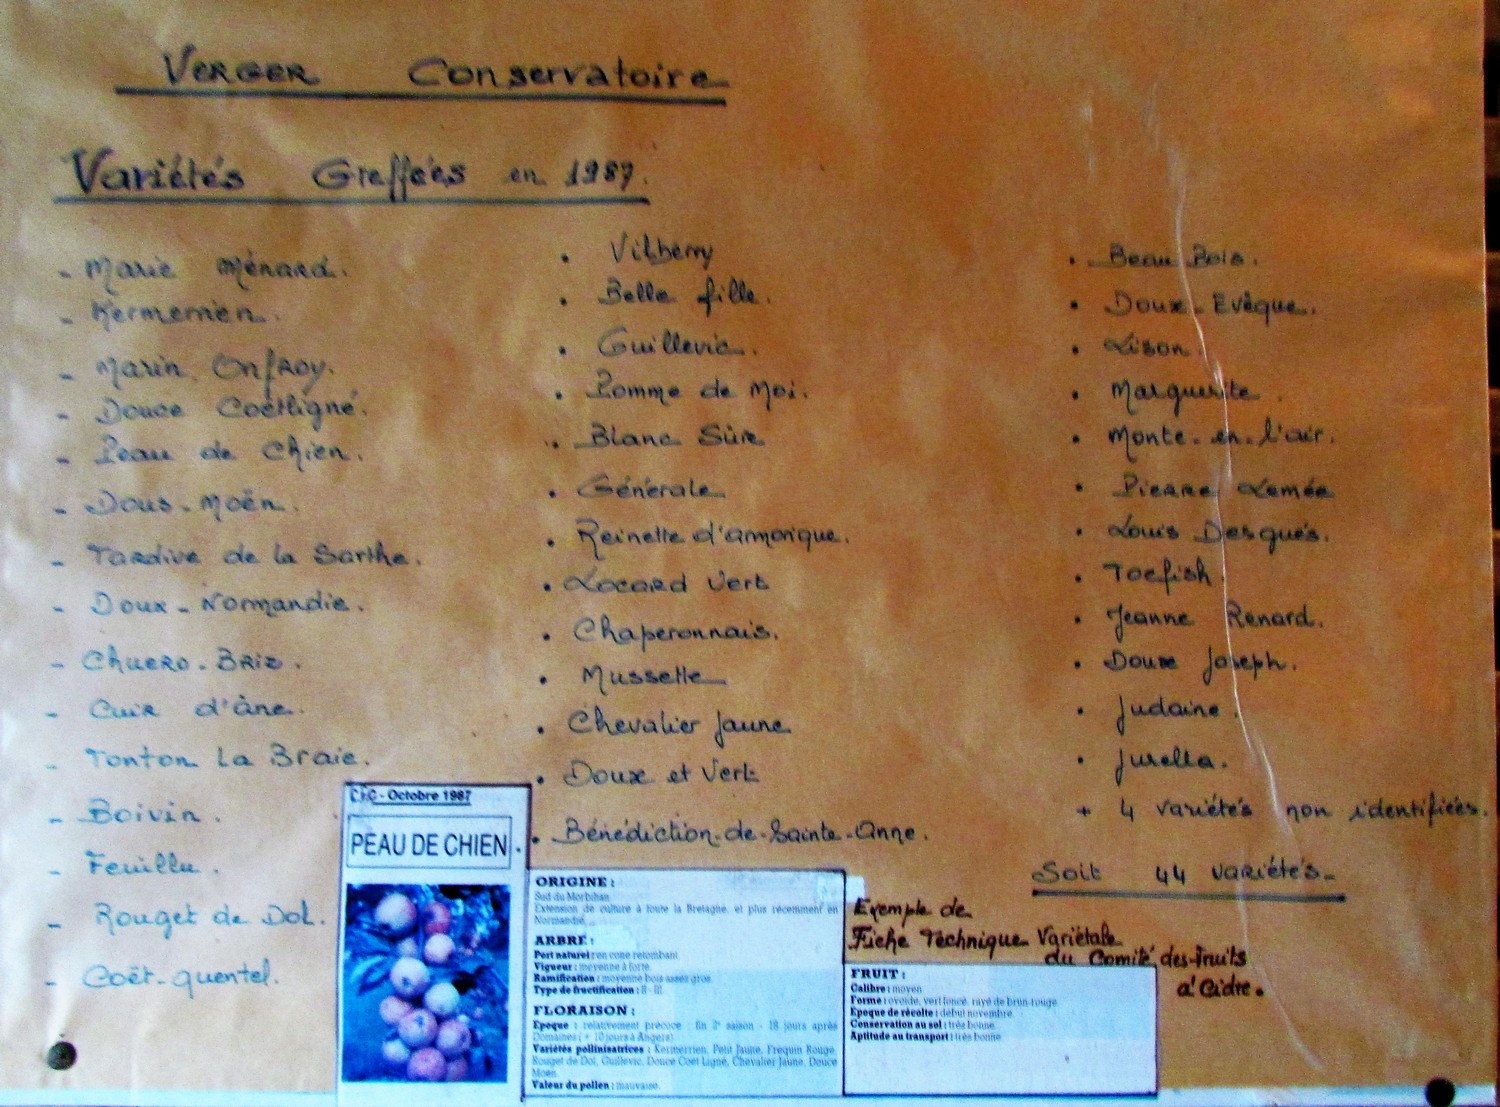 VERGER Conservatoire
Variétés Greffées en 1987.
- Marie Ménard.
- Kermerrien.
- Marin Onfroy.
- Douce Coëtligné.
- Peau de Chien.
- Dous-Moën.
- Tardive de la Sarthe.
- Doux-Normandie.
- Chuero-Briz.
- Cuir d'âne.
- Tonton La Braie.
- Boivin.
- Feuillu.
- Rouget de Dol.
- Coët-quentel.
• Vilberry
• Belle fille.
• Guillevic.
• Pomme de Moi.
• Blanc Sûr
• Générale
• Reinette d'armorique.
• Locard Vert
• Chaperonnais.
• Mussette
• Chevalier Jaune
• Doux et Vert
• Bénédiction-de-Sainte-Anne.
• Beau Bois.
• Doux-Evêque.
• Lison.
• Marguerite.
• Monte-en-l'air.
• Pierre Lemée
• Louis Desqués.
• Toefish.
• Jeanne Renard.
• Doux Joseph.
• Judaine.
• Jurella.
+ 4 variétés non identifiées.
Soit 44 variétés-
Exemple de
Fiche Technique Variétale
du Comité des Fruits
à Cidre.
- Octobre 1987
PEAU DE CHIEN
ORIGINE :
Sud du Morbihan
Extension de culture à toute la Bretagne, et plus récemment en
Normandie.
ARBRE :
Port naturel : en cone retombant.
Vigueur : moyenne à forte.
Ramification : moyenne bois assez gros.
Type de fructification : II - III.
FLORAISON :
Epoque : relativement précoce : fin 2e saison - 18 jours après
Domaines ( + 10 jours à Angers).
Variétés pollinisatrices : Kermerrien, Petit Jaune, Frequin Rouge,
Rouget de Dol, Guillevic, Douce Coet Ligné, Chevalier Jaune, Douce
Moen.
Valeur du pollen : mauvaise.
FRUIT :
Calibre : moyen
Forme : ovoide, vert foncé, rayé de brun-rouge.
Epoque de récolte : début novembre.
Conservation au sol : très bonne.
Aptitude au transport : très bonne.